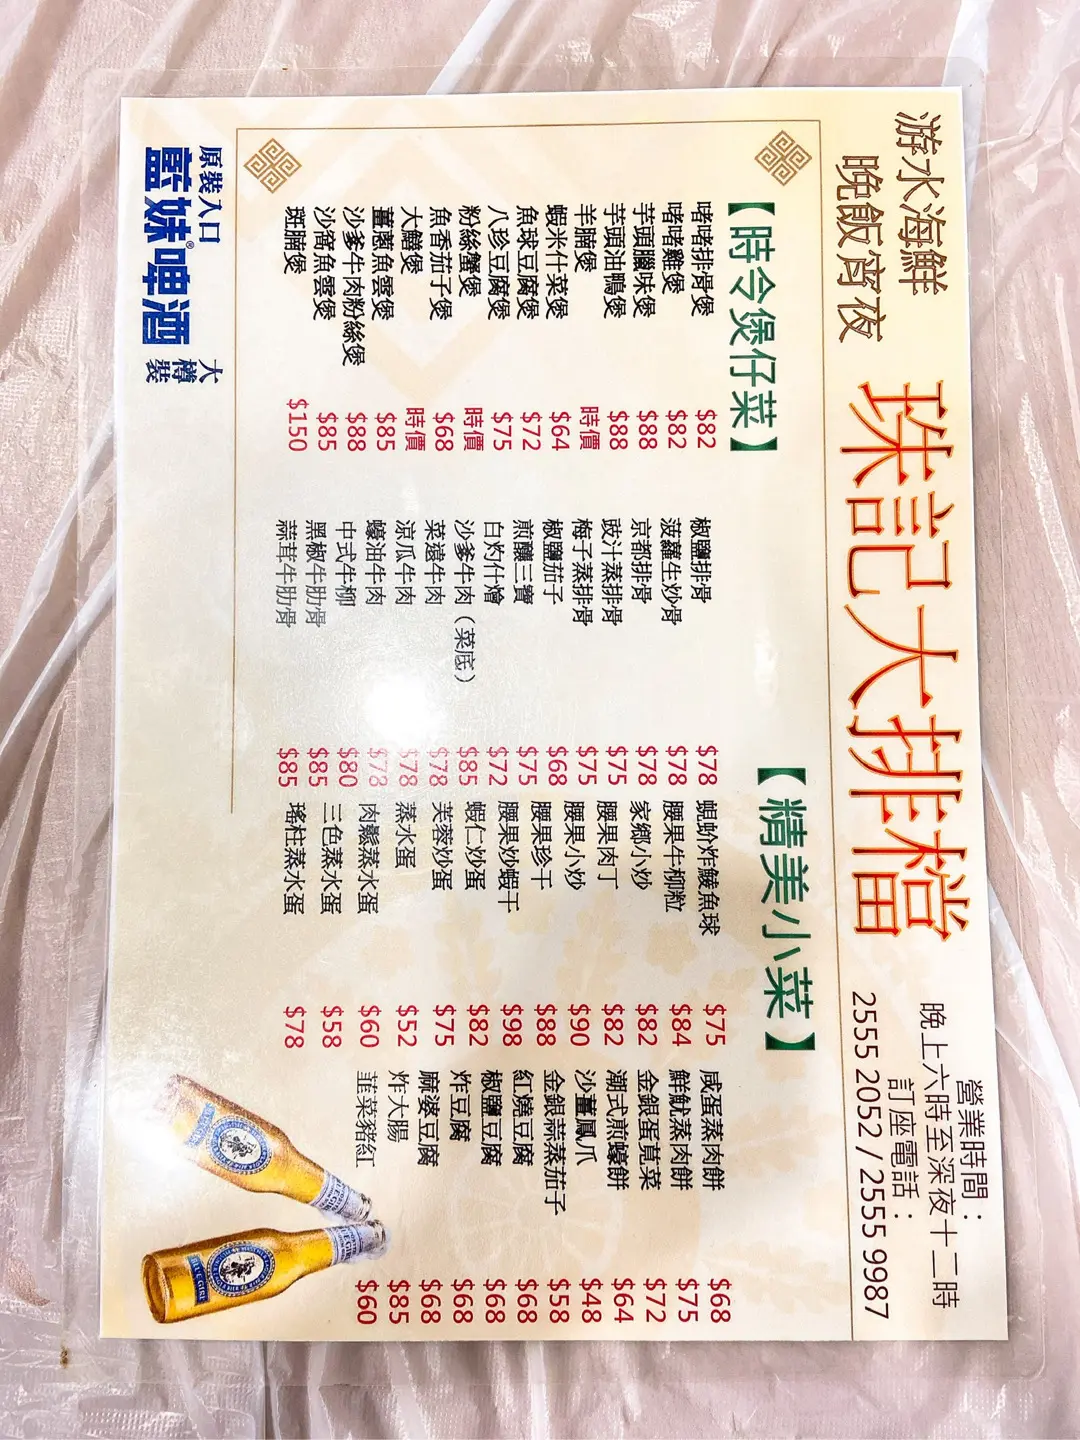 游水海鮮
晚飯宵夜
珠記大排檔
營業時間：
晚上六時至深夜十二時
訂座電話：
2555 2052 / 2555 9987
【時令煲仔菜】
啫啫排骨煲 $82
啫啫雞煲 $82
芋頭臘味煲 $88
芋頭油鴨煲 $88
羊腩煲 時價
蝦米什菜煲 $64
魚球豆腐煲 $72
八珍豆腐煲 $75
粉絲蟹煲 時價
魚香茄子煲 $68
大鱔煲 時價
薑蔥魚雲煲 $85
沙爹牛肉粉絲煲 $88
沙窩魚雲煲 $85
斑腩煲 $150
【精美小菜】
椒鹽排骨 $78
菠蘿生炒骨 $78
京都排骨 $78
豉汁蒸排骨 $75
梅子蒸排骨 $75
椒鹽茄子 $68
煎釀三寶 $75
白灼什燴 $72
沙爹牛肉（菜底） $85
菜遠牛肉 $78
涼瓜牛肉 $78
蠔油牛肉 $78
中式牛柳 $80
黑椒牛肋骨 $85
蒜茸牛肋骨 $85
蜆蚧炸鯪魚球 $75
腰果牛柳粒 $84
家鄉小炒 $82
腰果肉丁 $82
腰果小炒 $90
腰果珍干 $88
腰果炒蝦干 $98
蝦仁炒蛋 $82
芙蓉炒蛋 $75
蒸水蛋 $52
肉鬆蒸水蛋 $60
三色蒸水蛋 $58
瑤柱蒸水蛋 $78
咸蛋蒸肉餅 $68
鮮魷蒸肉餅 $75
金銀蛋莧菜 $72
潮式煎蠔餅 $64
沙薑鳳爪 $48
金銀蒜蒸茄子 $58
紅燒豆腐 $68
椒鹽豆腐 $68
炸豆腐 $68
麻婆豆腐 $68
炸大腸 $85
韮菜豬紅 $60
原裝入口
藍妹®啤酒
大樽裝
BLUE GIRL
BLUE GIRL